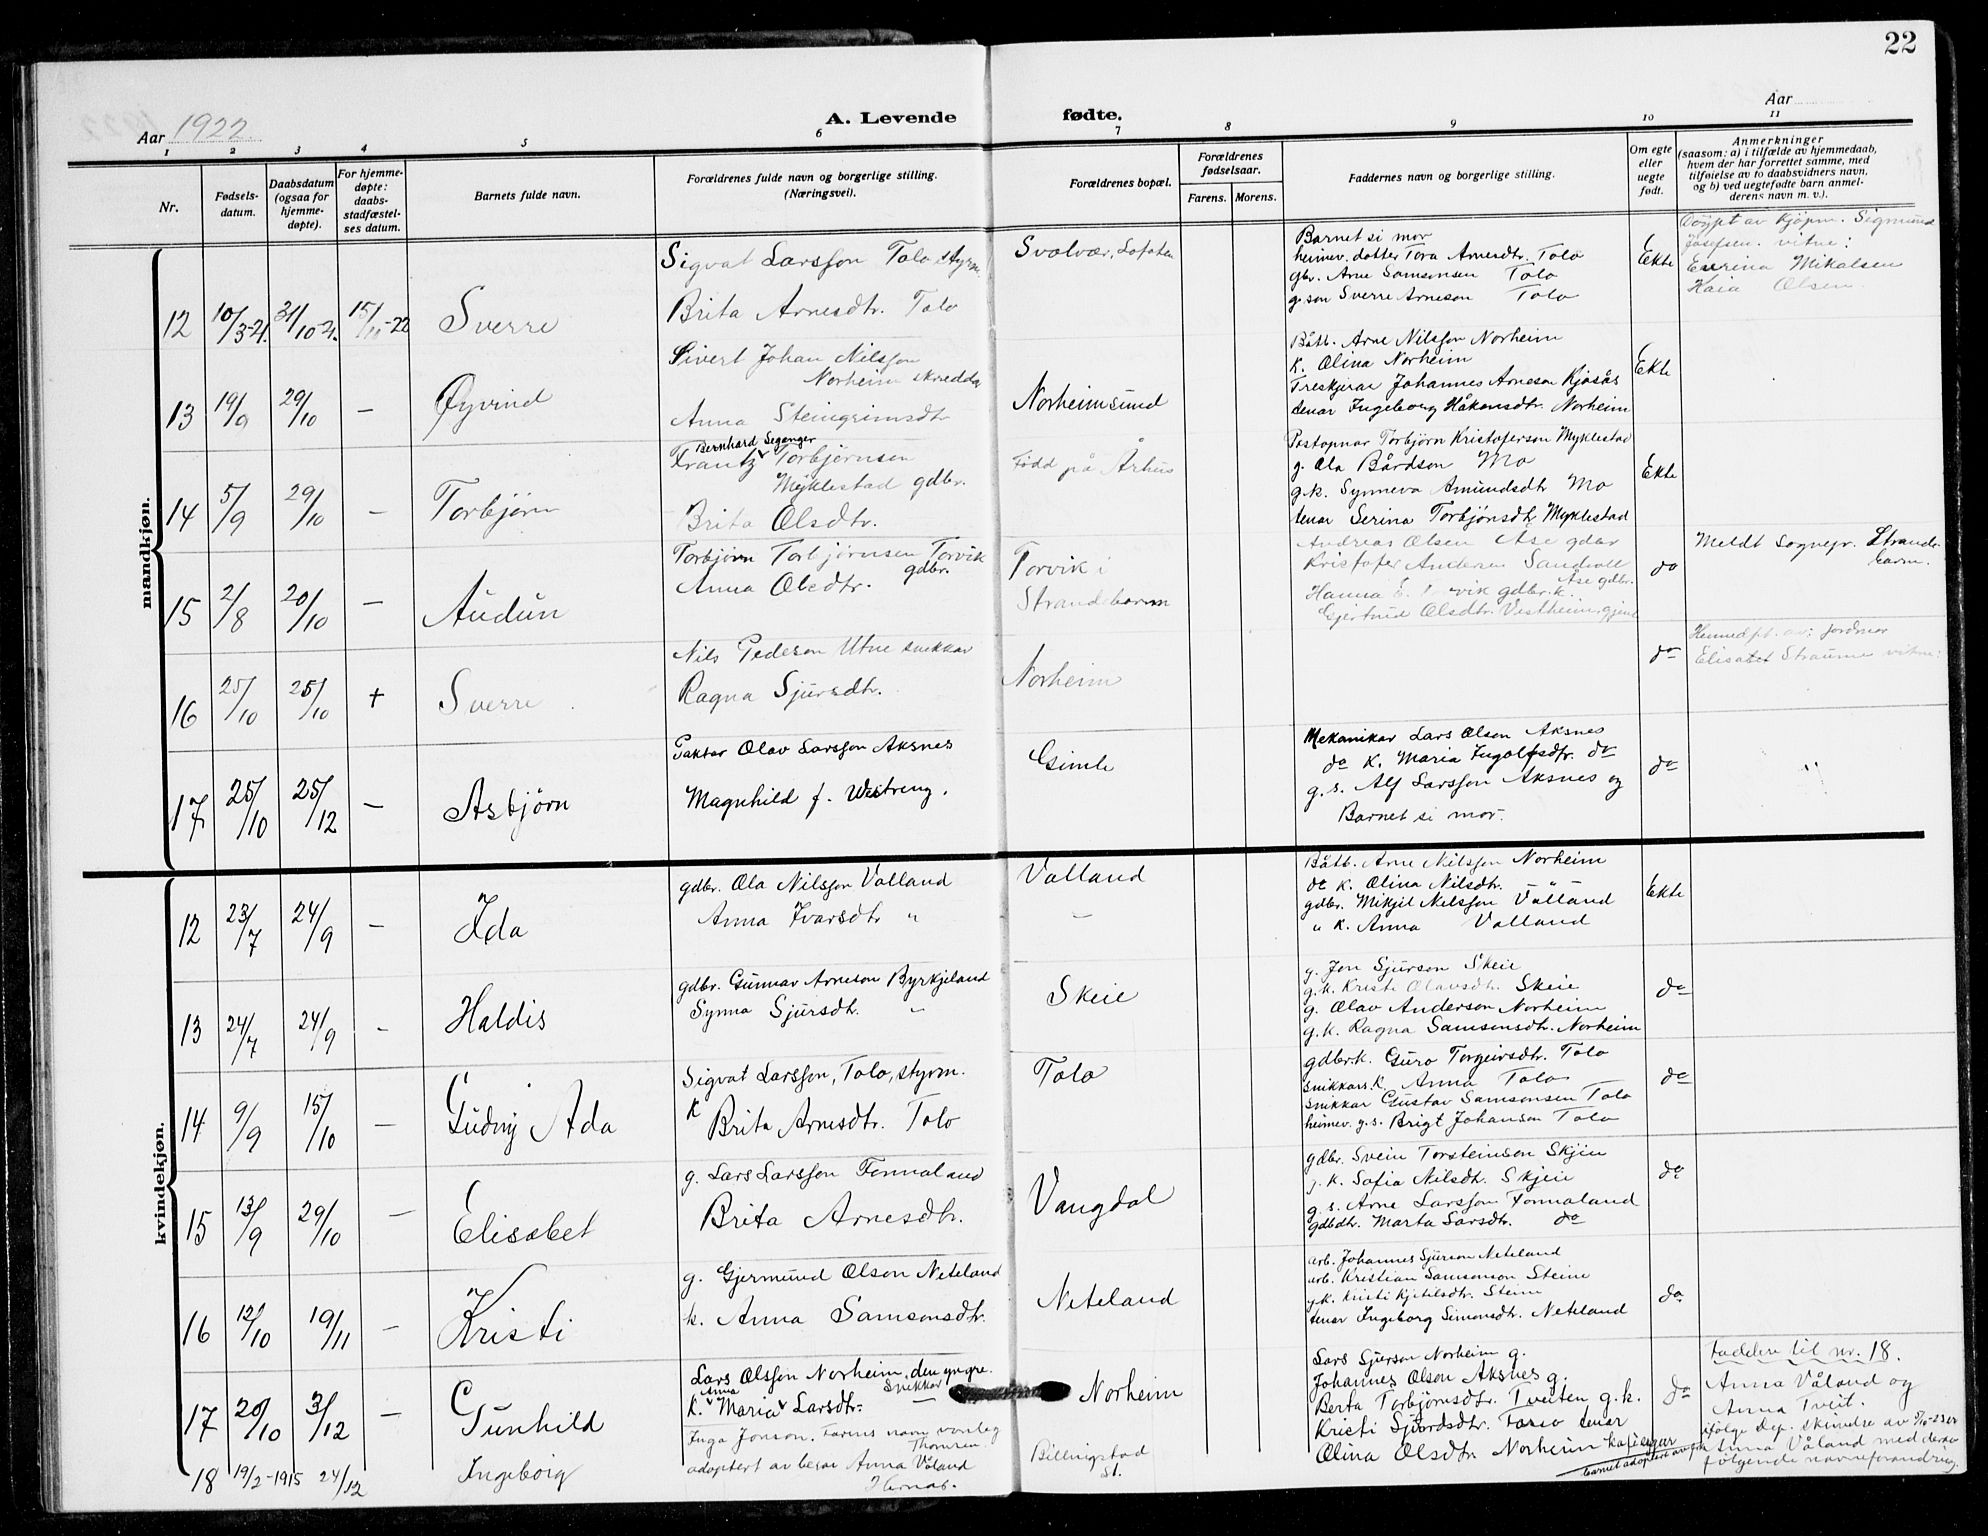 22
Aar 1922.
A. Levende fødte.
Aar
1 2 3 4 5 6 7 8 9 10 11
Nr.
Fødsels-
datum.
Daabsdatum
(ogsaa for
hjemme-
døpte).
For hjemme-
døpte:
daabs-
stadfæstel-
ses datum.
Barnets fulde navn.
Forældrenes fulde navn og borgerlige stilling.
(Næringsvei).
Forældrenes bopæl.
Forældrenes
fødselsaar.
Farens. Morens.
Faddernes navn og borgerlige stilling.
Om egte
eller
uegte
født.
Anmerkninger
(saasom: a) i tilfælde av hjemmedaab,
hvem der har forrettet samme, med
tilføielse av to daabsvidners navn,
og b) ved uegtefødte barn anmel-
derens navn m. v.).
mandkjøn.
12 10/3-21. 31/10-21. 15/11-22 Sverre
Sigvat Larsson Tolo styrm.
Brita Arnesdtr. Tolo
Svolvær, Lofoten
Barnet si mor
heimev. dotter Tora Arnesdtr. Tolo
gbr. Arne Samsonsen Tolo
g. son Sverre Arneson Tolo
Ekte
Døypt av kjøpm. Sigmund
Josefsen. vitne:
Mikalsen
Kaia Olsen.
13 19/9 29/10 — Øyvind
Sivert Johan Nilsson
Norheim skreddar
Anna Steingrimsdtr
Norheimsund
Båtb. Arne Nilsson Norheim
K. Olina Norheim
Treskjerar Johannes Arneson Kjosås
tenar Ingeborg Håkonsdtr. Norheim
Ekte
14 5/9 29/10 — Torbjørn
Bernhard Seganger
Frantz Torbjørnsen
Myklestad gdbr.
Brita Olsdtr.
Fødd på Århus
Postopnar Torbjørn Kristoferson Myklestad
g. Ola Bårdson Mo
g.k. Synneva Amundsdtr Mo
tenar Serina Torbjønsdtr Myklestad
Ekte
15 2/8 20/10 — Audun
Torbjørn Torbjørnsen Torvik
gdbr.
Anna Olsdtr.
Torvik i
Strandebarm
Andreas Olsen Åse gdbr
Kristofer Andersen Sandvoll
Åse gdbr.
Hanna E. Torvik gdbr.k.
Gjertrud Olsdtr. Vestheim, gjent
do
Meldt Sognepr. Strande-
barm.
16 25/10 25/10 + Sverre
Nils Pederson Utne snekkar
Ragna Sjursdtr.
Norheim
do
Heimedøpt av: jordmor
Elisabet Straume vitne:
17 25/10 25/12 — Asbjørn
Faktor Olav Larsson Aksnes
Magnhild f. Westreng.
Gimle
Mekanikar Lars Olson Aksnes
do K. Maria Ingolfsdtr. do
g.s. Alf Larsson Aksnes og
Barnet si mor.
do
kvindekjøn.
12 23/7 24/9 — Ida
gdbr. Ola Nilsson Valland
Anna Ivarsdtr "
Valland
—
Båtb. Arne Nilsson Norheim
do k. Olina Nilsdtr. — " —
gdbr. Mikjel Nilsson Valland
" k. Anna Valland
Ekte
13 24/7 24/9 - Haldis
gdbr. Gunnar Arneson Byrkjeland
Synna Sjursdtr. "
Skeie
g. Jon Sjurson Skeie
g.k. Kristi Olavsdtr. Skeie
g. Olav Anderson Norheim
g.k. Ragna Samsonsdtr. Norheim
do
14 9/9 15/10 — Gudny Ada
Sigvat Larsson, Tolo, styrm.
K Brita Arnesdtr. Tolo
Tolo
gdbr.k. Guro Torgeirsdtr. Tolo
snikkars k. Anna Tolo
snikkar Gustav Samsonsen Tolo
heimev. g.s. Brigt Johanson Tolo
do
15 13/9 29/10 — Elisabet
g. Lars Larsson Fonnaland
Brita Arnesdtr.
Vangdal
gdbr. Svein Torsteinson Skjien
g.k. Sofia Nilsdtr. Skjein
g.s. Arne Larsson Fonnaland
gdbdtr. Marta Larsdtr. do
do
16 12/10 19/11 — Kristi
g. Gjermund Olson Neteland
k. Anna Samsonsdtr.
Neteland
arb. Johannes Sjurson Neteland
arb. Kristian Samsonson Steine
g.k. Kristi Kjetilsdtr. Steine
tenar Ingeborg Simonsdtr. Neteland
do
17 20/10 3/12 — Gunhild
Lars Olsson Norheim, den yngre.
Snikkar
Anna
K. Maria Larsdtr. —
Norheim
Lars Sjurson Norheim g.
Johannes Olson Aksnes g.
Berta Torbjørnsdtr. Tveiten g.k.
Kristi Sjurdsdtr. tenar
Olina Olsdtr Norheim
do
Faddere til nr. 18.
Anna Våland og
Anna Tveit.
18 19/2-1915 24/12 Ingeborg
Inga Jonson. Farens navn
adoptert av Anna Våland
Billingstad
St.
barnet adoptert av frk.
ifølge dep. skrivelse av
Anna Våland med derav
følgende navneforandring.